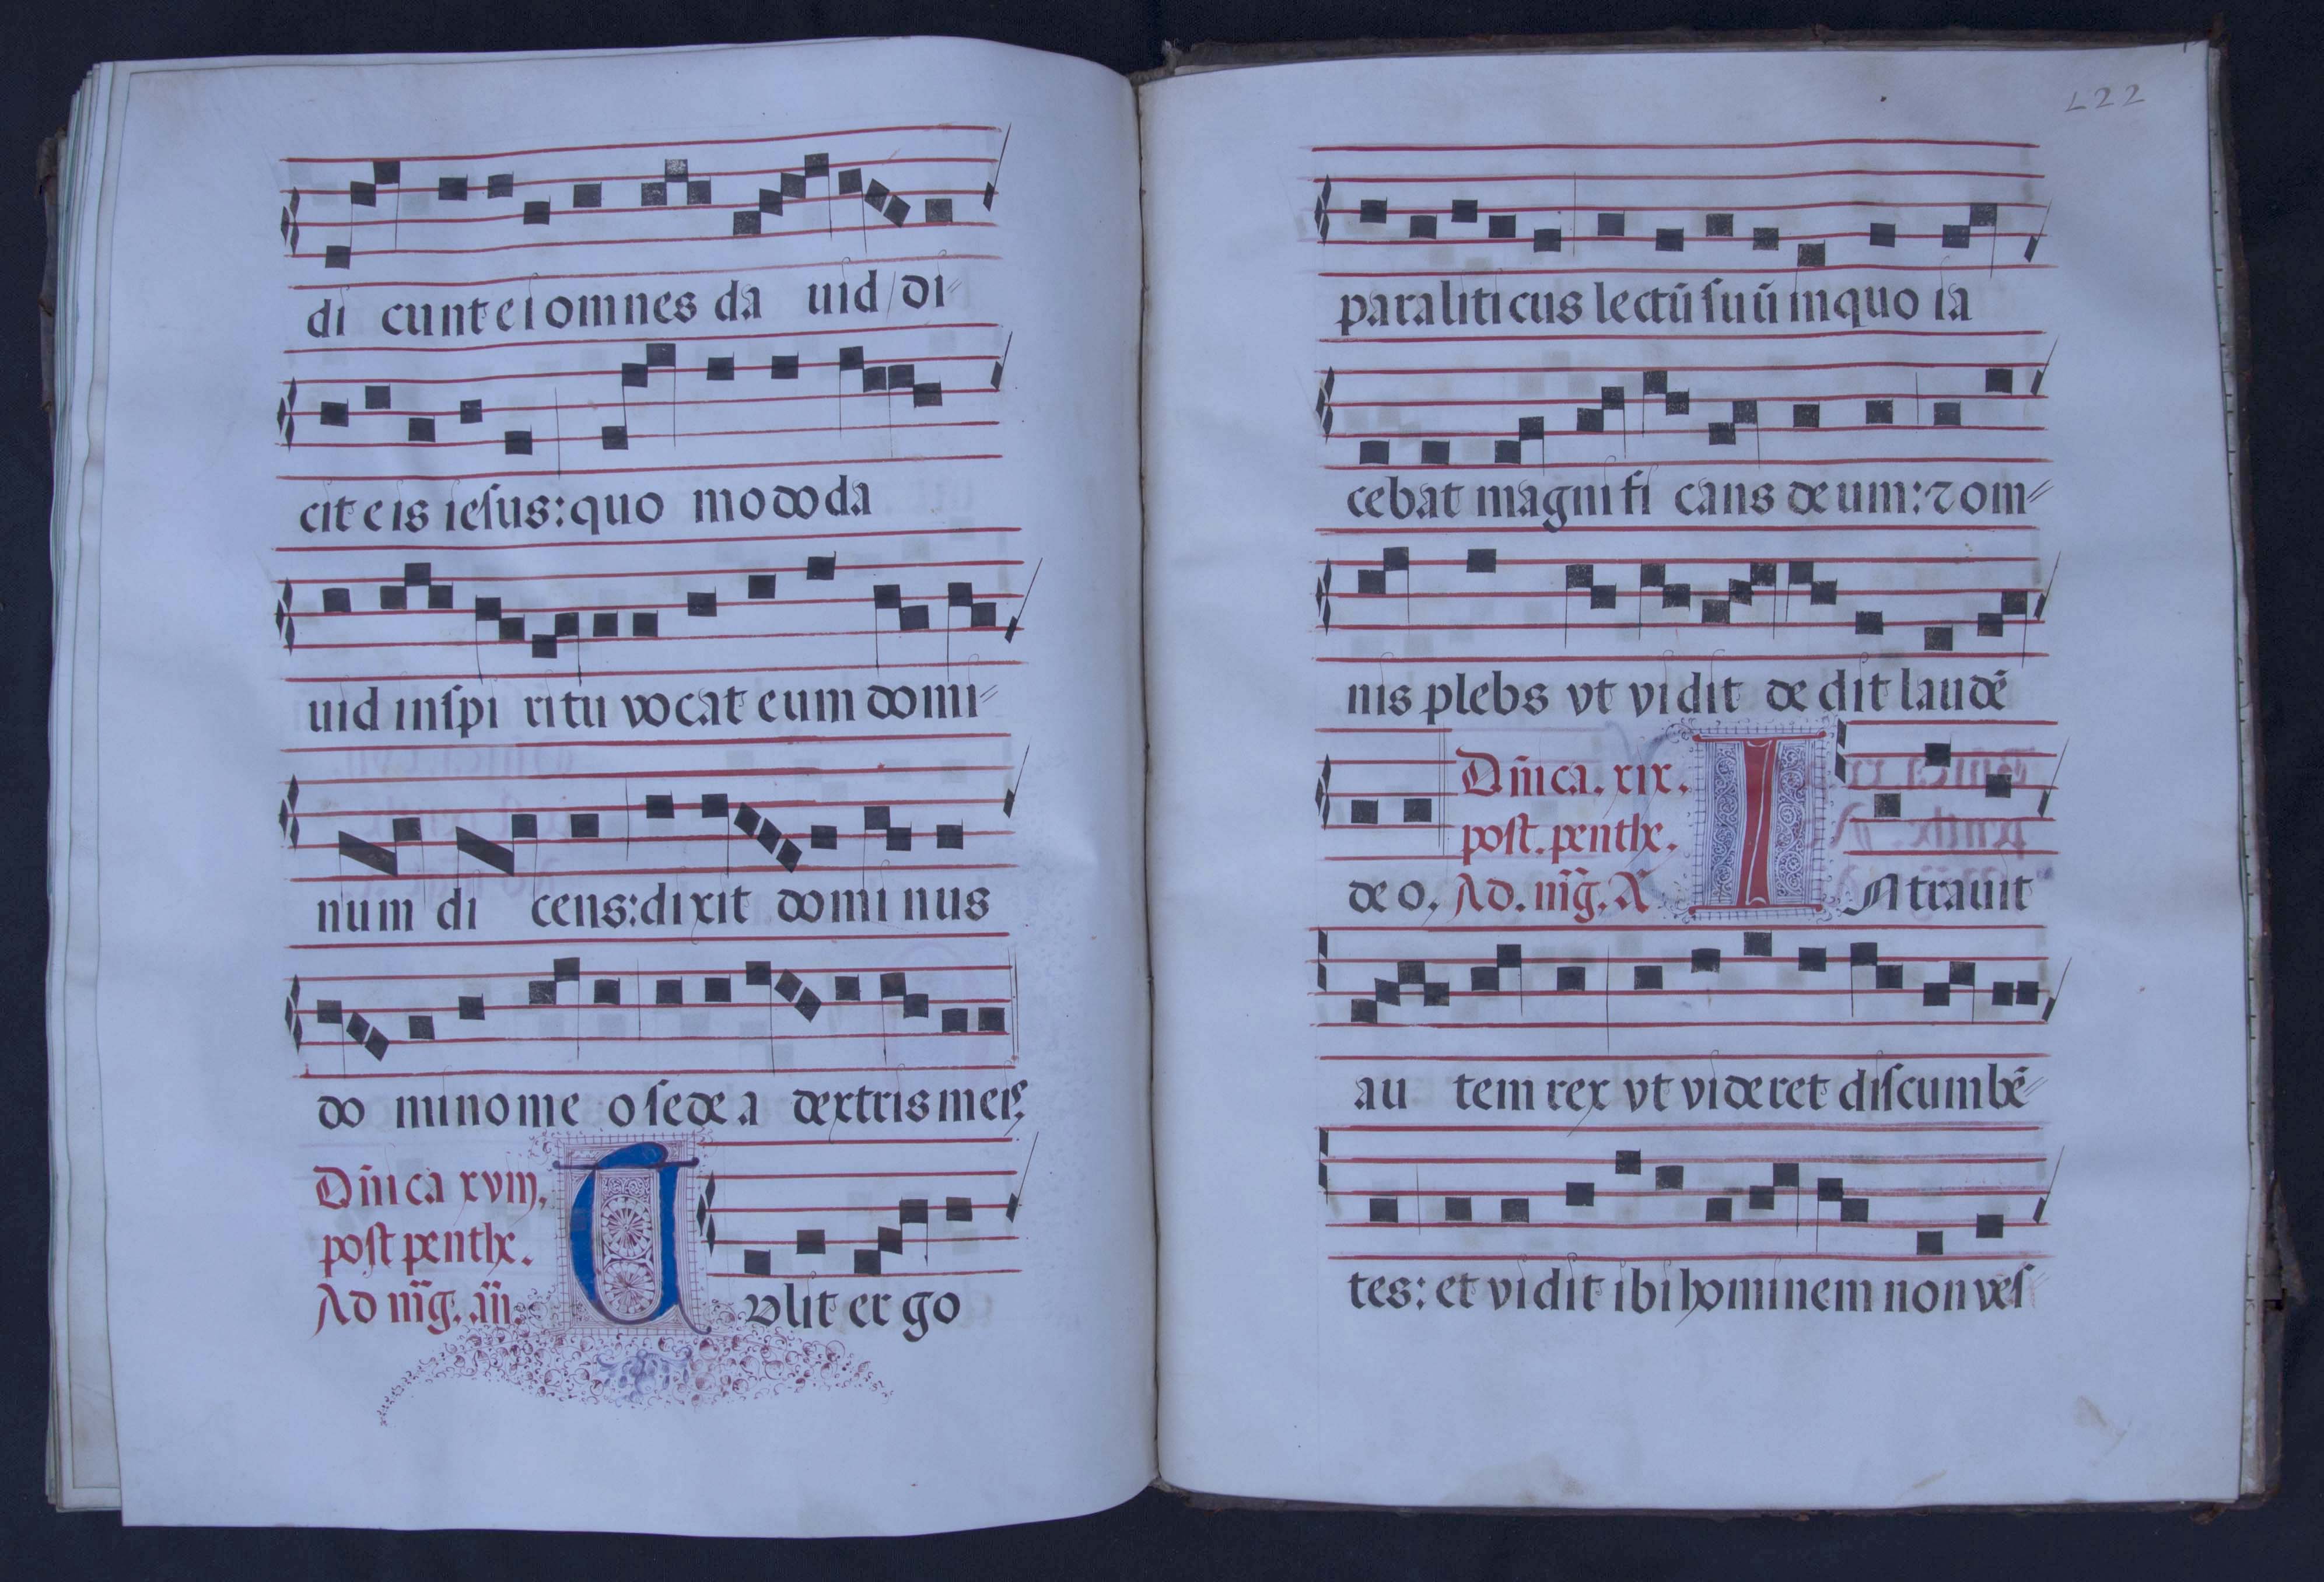 di cunt ei omnes da uid / di=
cit eis iesus: quo modo da
uid in spi ritu vocat eum domi=
num di cens: dixit domi nus
do mino me o sede a dextris meis,
Dñica xviij,
post penthe.
Ad mg̃. añ.
Tvlit er go
L22
paraliticus lectũ suũ in quo ia
cebat magnifi cans deum: ⁊ om=
nis plebs vt vidit de dit laudẽ
Dñica. xix.
post. penthe.
de o, Ad. mg̃. A
INtrauit
au tem rex vt videret discumbẽ=
tes: et vidit ibi hominem non ves=